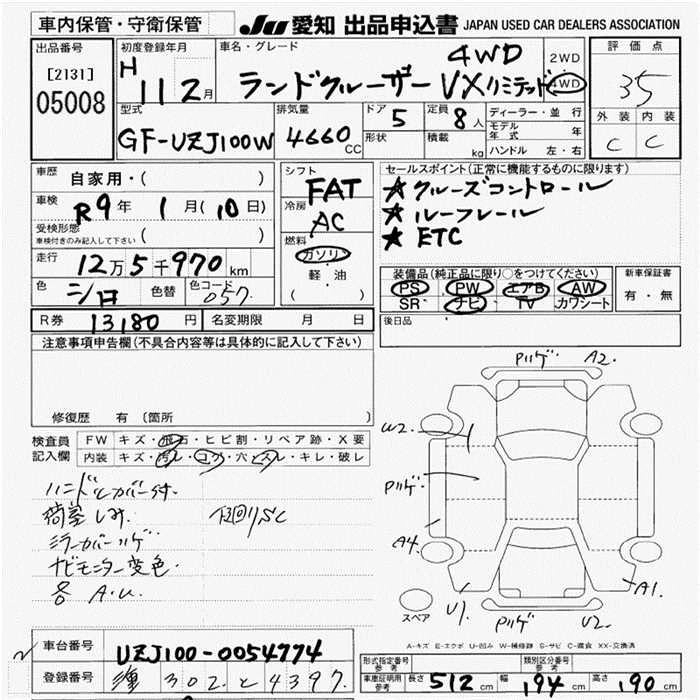 車内保管・守衛保管 JU 愛知 出品申込書 JAPAN USED CAR DEALERS ASSOCIATION
出品番号 [2131] 05008
初度登録年月 H 11 2月
車名・グレード ランドクルーザー VXリミテッド 4WD
2WD 4WD
評価点 35
外装 内装
C C
型式 GF-UZJ100W
排気量 4660 CC
ドア 5 形状
定員 8人 積載 kg
ディーラー・並行
モデル年式 年
ハンドル 左・右
車歴 自家用・( )
車検 R9年 1月(10日)
受検形態 車検付きのみ記入して下さい ( )
走行 12万5千970km
色 シロ 色替 色コード 057
シフト FAT
冷房 AC
燃料 ガソリン 軽・油 ( )
セールスポイント(正常に機能するものに限ります)
★クルーズコントロール
★ルーフレール
★ETC
装備品(純正品に限り○をつけてください)
PS PW エアB AW
SR ナビ TV カワシート
新車保証書 有・無
R券 13180円 名変期限 月 日
後日品
注意事項申告欄(不具合内容等は具体的に記入して下さい)
修復歴 有 〔箇所
検査員記入欄 FW キズ・飛石・ヒビ割・リペア跡・X要
内装 キズ・汚レ・コゲ・穴・スレ・キレ・破レ
ハンドルカバー付.
荷室しみ. 下回りSC
ミラーカバーハゲ
ナビモニター変色.
各 A.U.
Pハゲ A2.
W2.
Pハゲ.
A4.
U1. Pハゲ U2. A1.
スペア
A-キズ E-エクボ U-凹み W-補修跡 S-サビ C-腐食 XX-交換済
車台番号 UZJ100-0054774
登録番号 302 と 4397
形式指定番号 参考 類別区分番号 参考
車庫証明用 参考 長さ 512 cm 幅 194 cm 高さ 190 cm